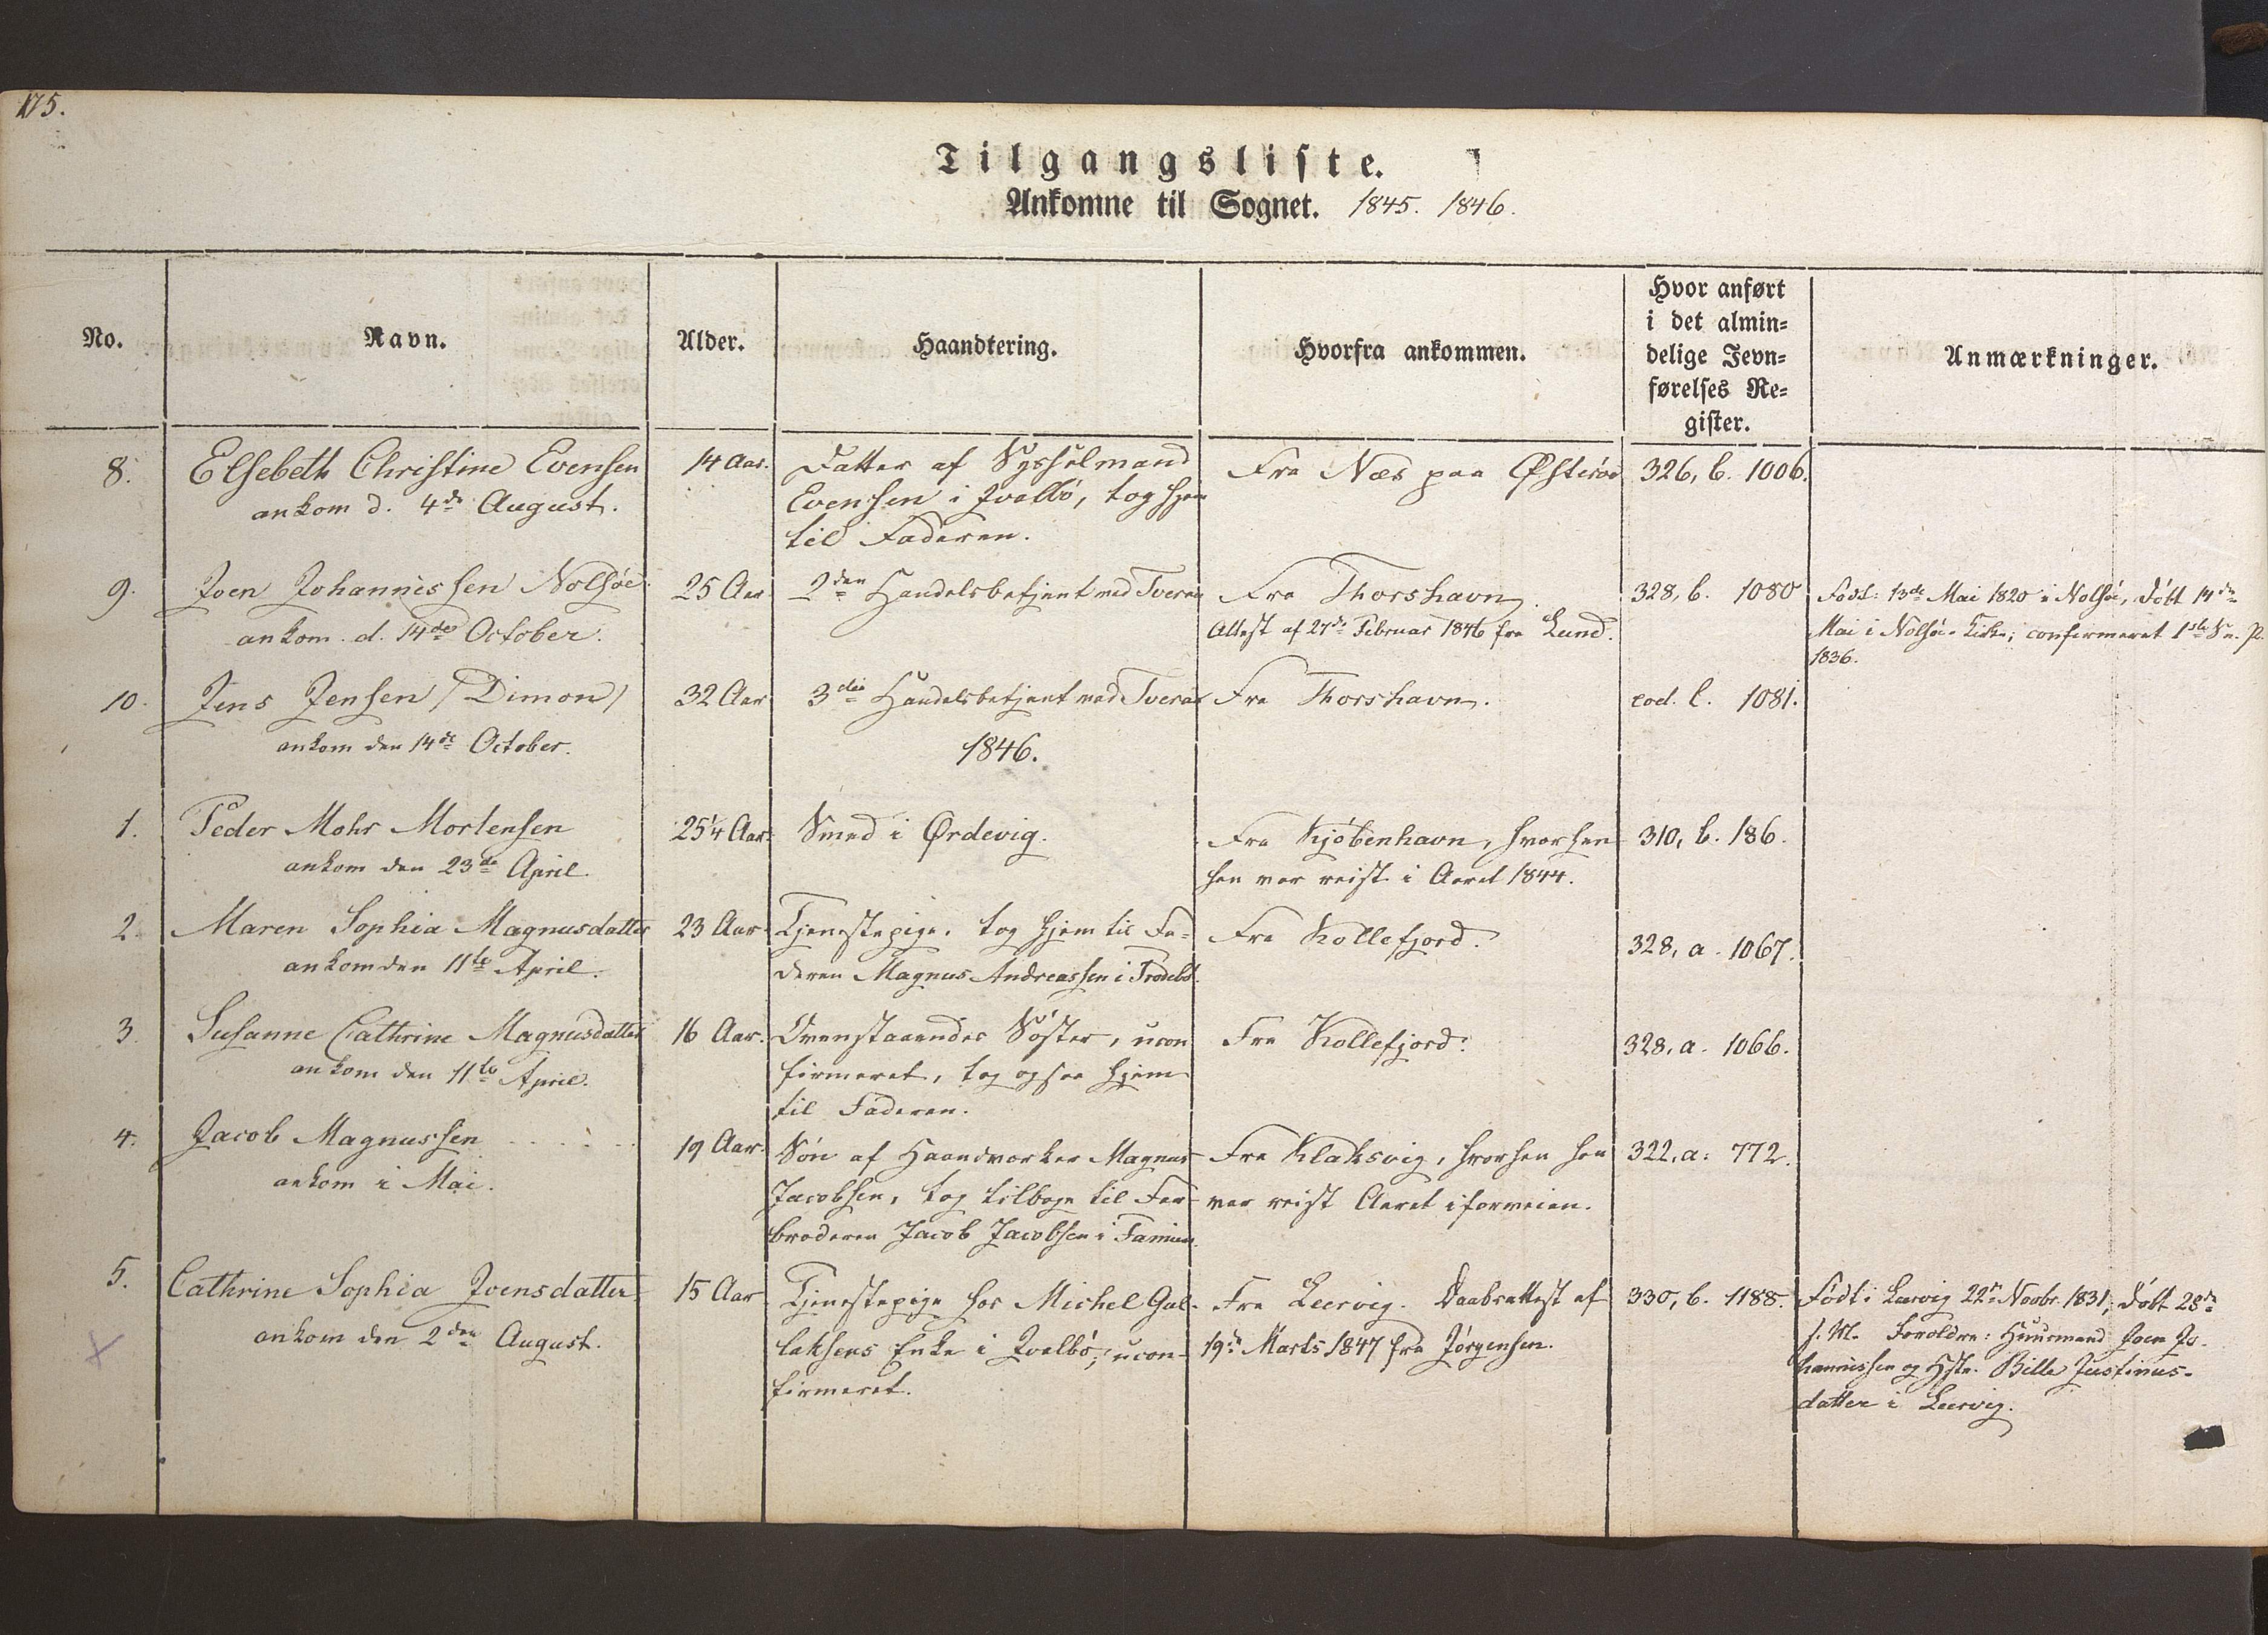 175.
Tilgangsliste.
Ankomne til Sognet. 1845. 1846.
No.
Navn.
Alder.
Haandtering.
Hvorfra ankommen.
Hvor anført
i det almin=
delige Jevn=
førelses Re=
gister.
Anmærkninger.
8.
Elsebeth Christine Evensen
ankom d. 4de August.
14 Aar.
Datter af Sysselmand
Evensen i Qvalbö, tog hjem
til Faderen.
Fra Næs paa Østeröe
326, b. 1006.
9.
Joen Johannissen Nolsöe
ankom. d. 14de October.
25 Aar
2den Handelsbetjent ved Tveraa
Fra Thorshavn.
Attest af 27de Februar 1846 fra Lund.
328, b. 1080
Född: 13de Mai 1820 i Nolsöe, döbt 14de
Mai i Nolsöe Kirke; confirmeret 1ste S. n. P.
1836.
10.
Jens Jensen / Dimon /
ankom den 14de October.
32 Aar
3die Handelsbetjent ved Tveraa
Fra Thorshavn.
eod. l. 1081.
1846.
1.
Peder Mohr Mortensen
ankom den 23de April.
25 1/4 Aar.
Smed i Ørdevig.
Fra Kjöbenhavn, hvorhen
han var reist i Aaret 1844.
310, b. 186.
2.
Maren Sophia Magnusdatter
ankom den 11te April.
23 Aar
Tjenestepige. tog hjem til Fa-
deren Magnus Andreassen i Frodebö.
Fra Kollefjord.
328, a. 1067.
3.
Susanne Cathrine Magnusdatter
ankom den 11te April.
16 Aar.
Ovenstaaendes Söster, ucon
firmeret, tog ogsaa hjem
til Faderen.
Fra Kollefjord.
328, a. 1066.
4.
Jacob Magnussen
ankom i Mai.
19 Aar.
Sön af Haandværker Magnus
Jacobsen, tog tilbage til Far-
broderen Jacob Jacobsen i Famien.
Fra Klaksvig, hvorhen han
var reist Aaret i forveien.
322, a. 772.
5.
Cathrine Sophia Joensdatter
ankom den 2den August.
15 Aar
Tjenestepige hos Michel Gul-
laksens Enke i Qvalbö; ucon-
firmeret.
Fra Leervig. Daabsattest af
19de Marts 1847 fra Jörgensen.
330, b. 1188.
Født i Leervig 22de Novbr. 1831, döbt 28de
s. M. Forældre: Huusmand Joen Jo-
hannissen og Hstr. Bille Justinus-
datter i Leervig.